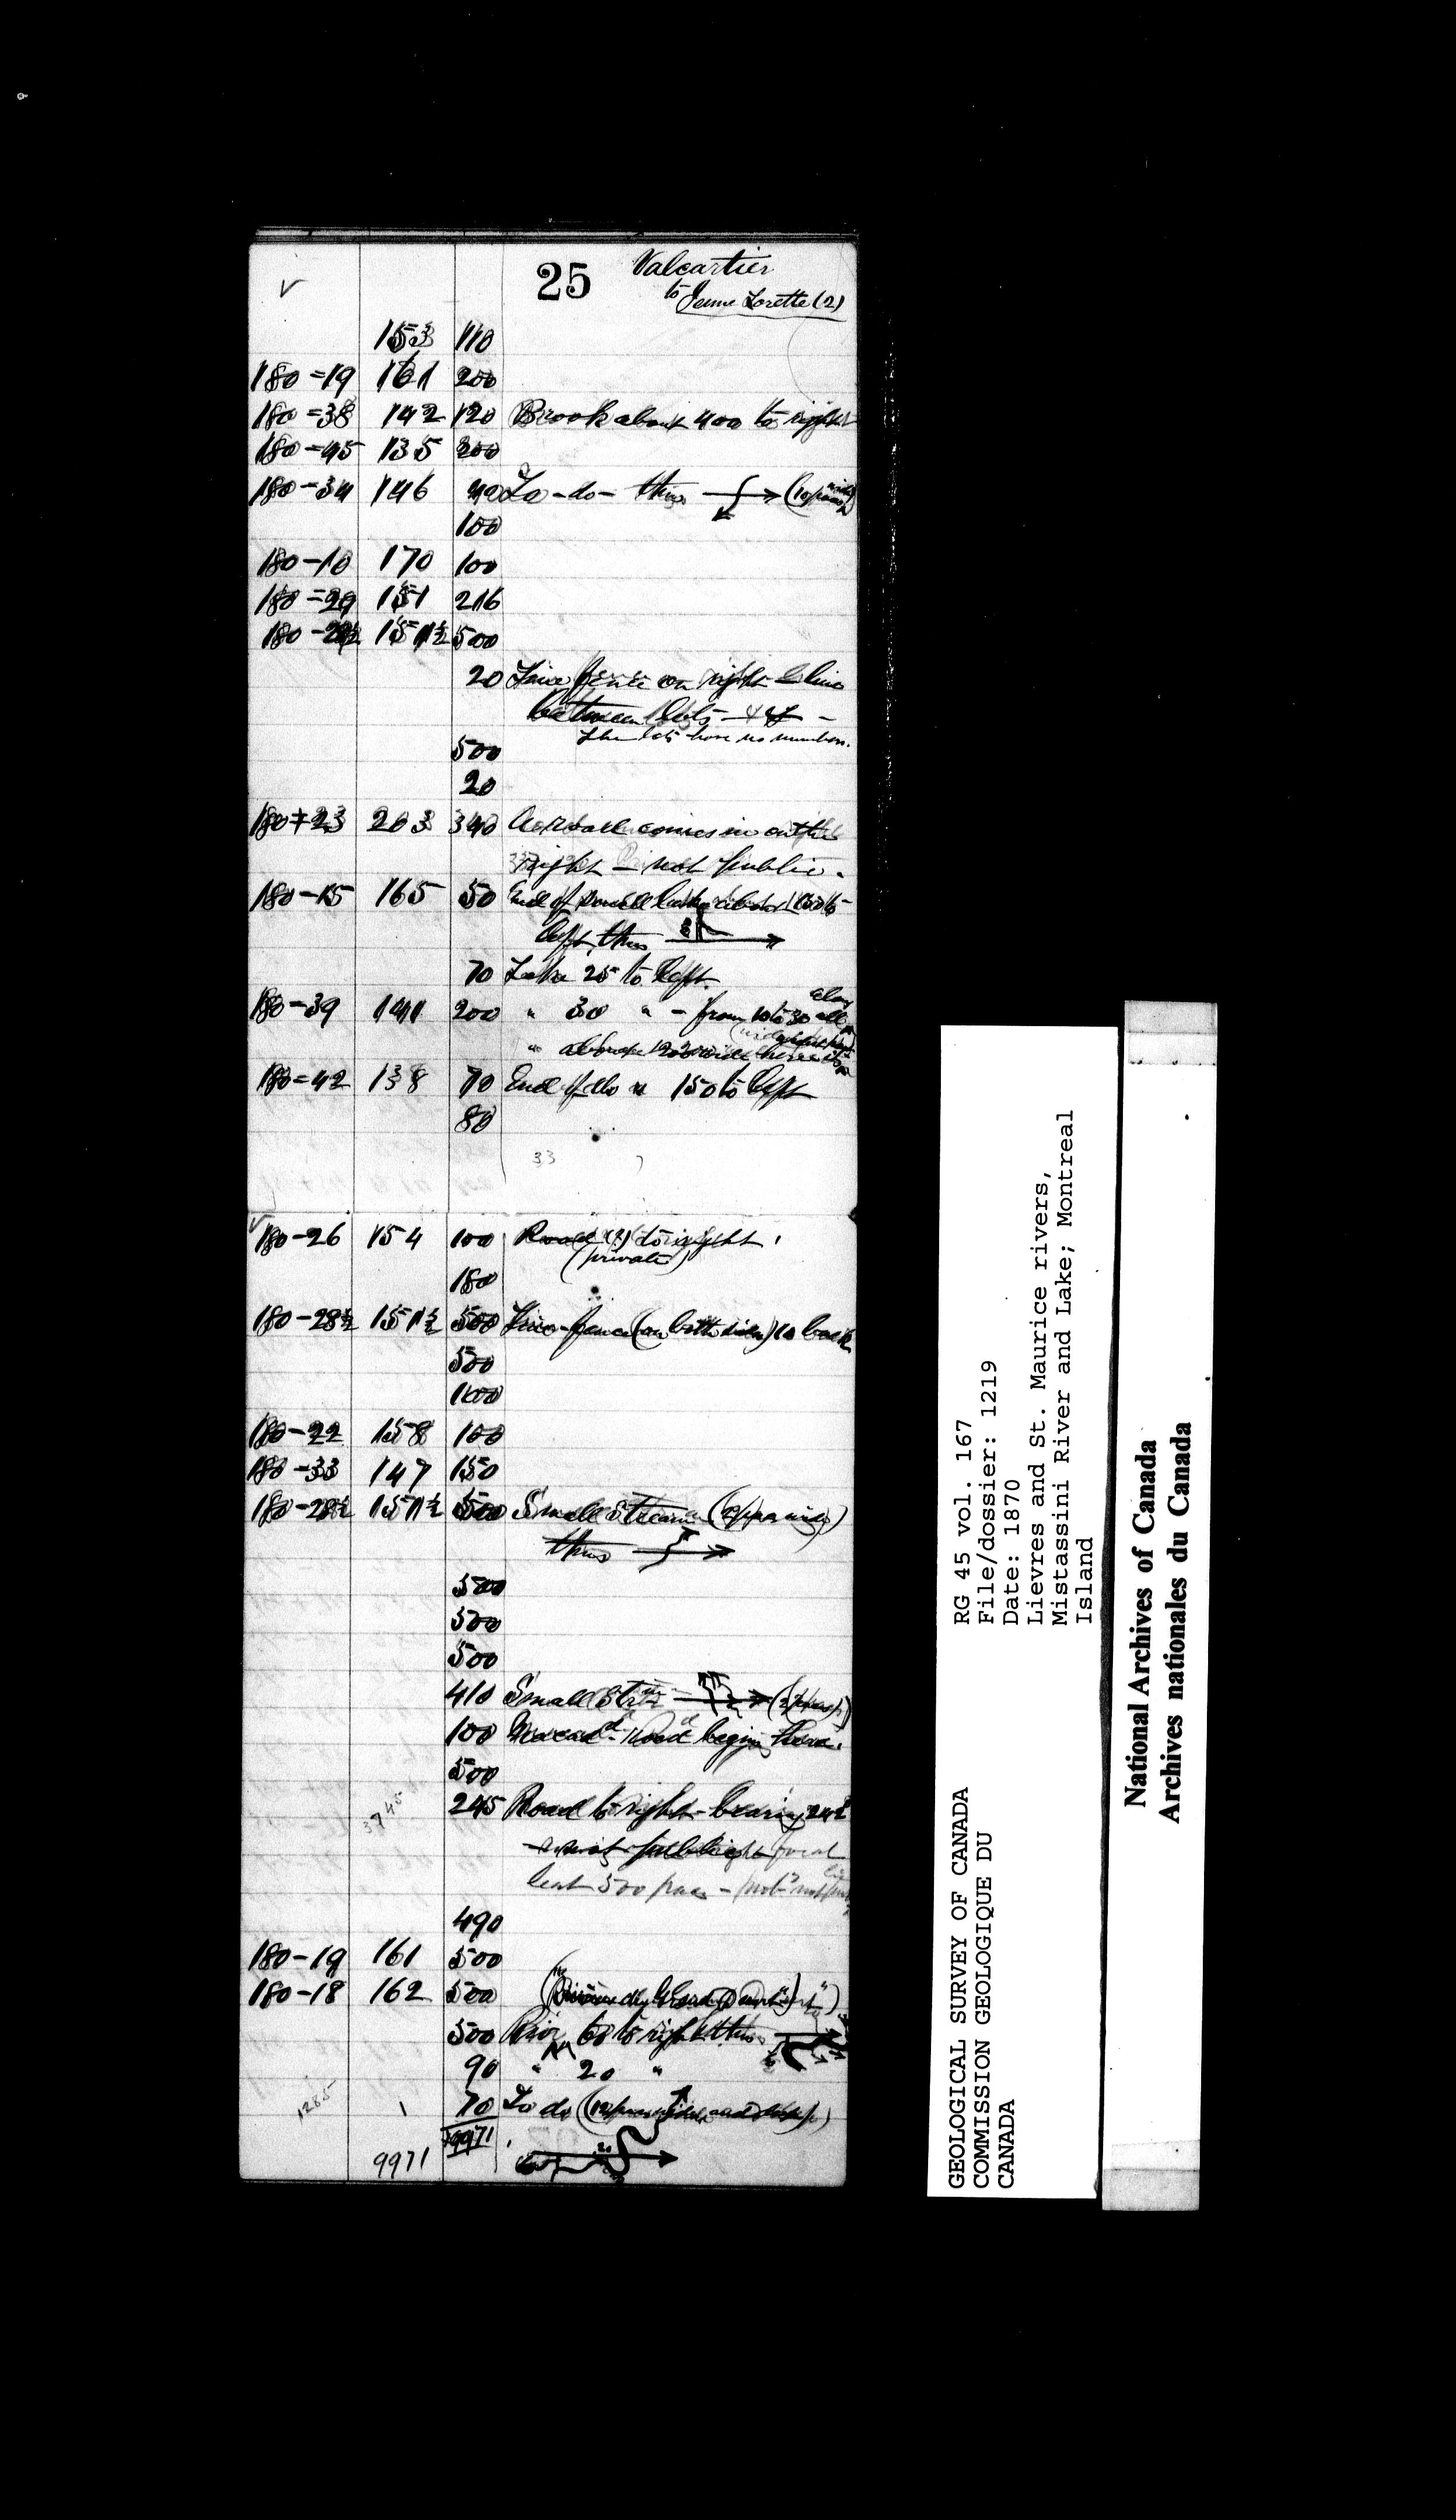 25 Valcartier
to Jeune Lorette (2)
153 110
180-19 161 200
180-38 142 120 Brook about 400 to right
180-45 135 200
180-34 146 40 To -do- thus (10 paces wide)
100
180-10 170 100
180-29 151 216
180-28½ 151½ 500
20 Line fence on right - line
between lots
The lots have no numbers.
500
20
180+23 203 340 A road comes in on the
right - not public.
180-15 165 50 End of small lake about 150 to
left, thus
70 Lake 25 to left.
180-39 141 200 " 30 " - from 10 to 30 all
along
" about wide here
180-42 138 70 End of do " 150 to left
80
33
180-26 154 100 Road (?) to right
(private)
180
180-28½ 151½ 500 Line-fence (on both sides) 10 back
500
100
180-22 158 100
180-33 147 150
180-28½ 151½ 500 Small Stream (2 pa wide)
thus
500
500
500
410 Small Strm
100 Macad Road begins here.
500
3745 245 Road to right - bearing 242
public for at
least 500 paces - prob not
490
180-19 161 500
180-18 162 500
500 River 60 to right thus
90 " 20 "
1285 1 70 To do (12 paces wide)
9971
9971
RG 45 vol. 167
File/dossier: 1219
Date: 1870
Lievres and St. Maurice rivers,
Mistassini River and Lake; Montreal
Island
GEOLOGICAL SURVEY OF CANADA
COMMISSION GEOLOGIQUE DU
CANADA
National Archives of Canada
Archives nationales du Canada